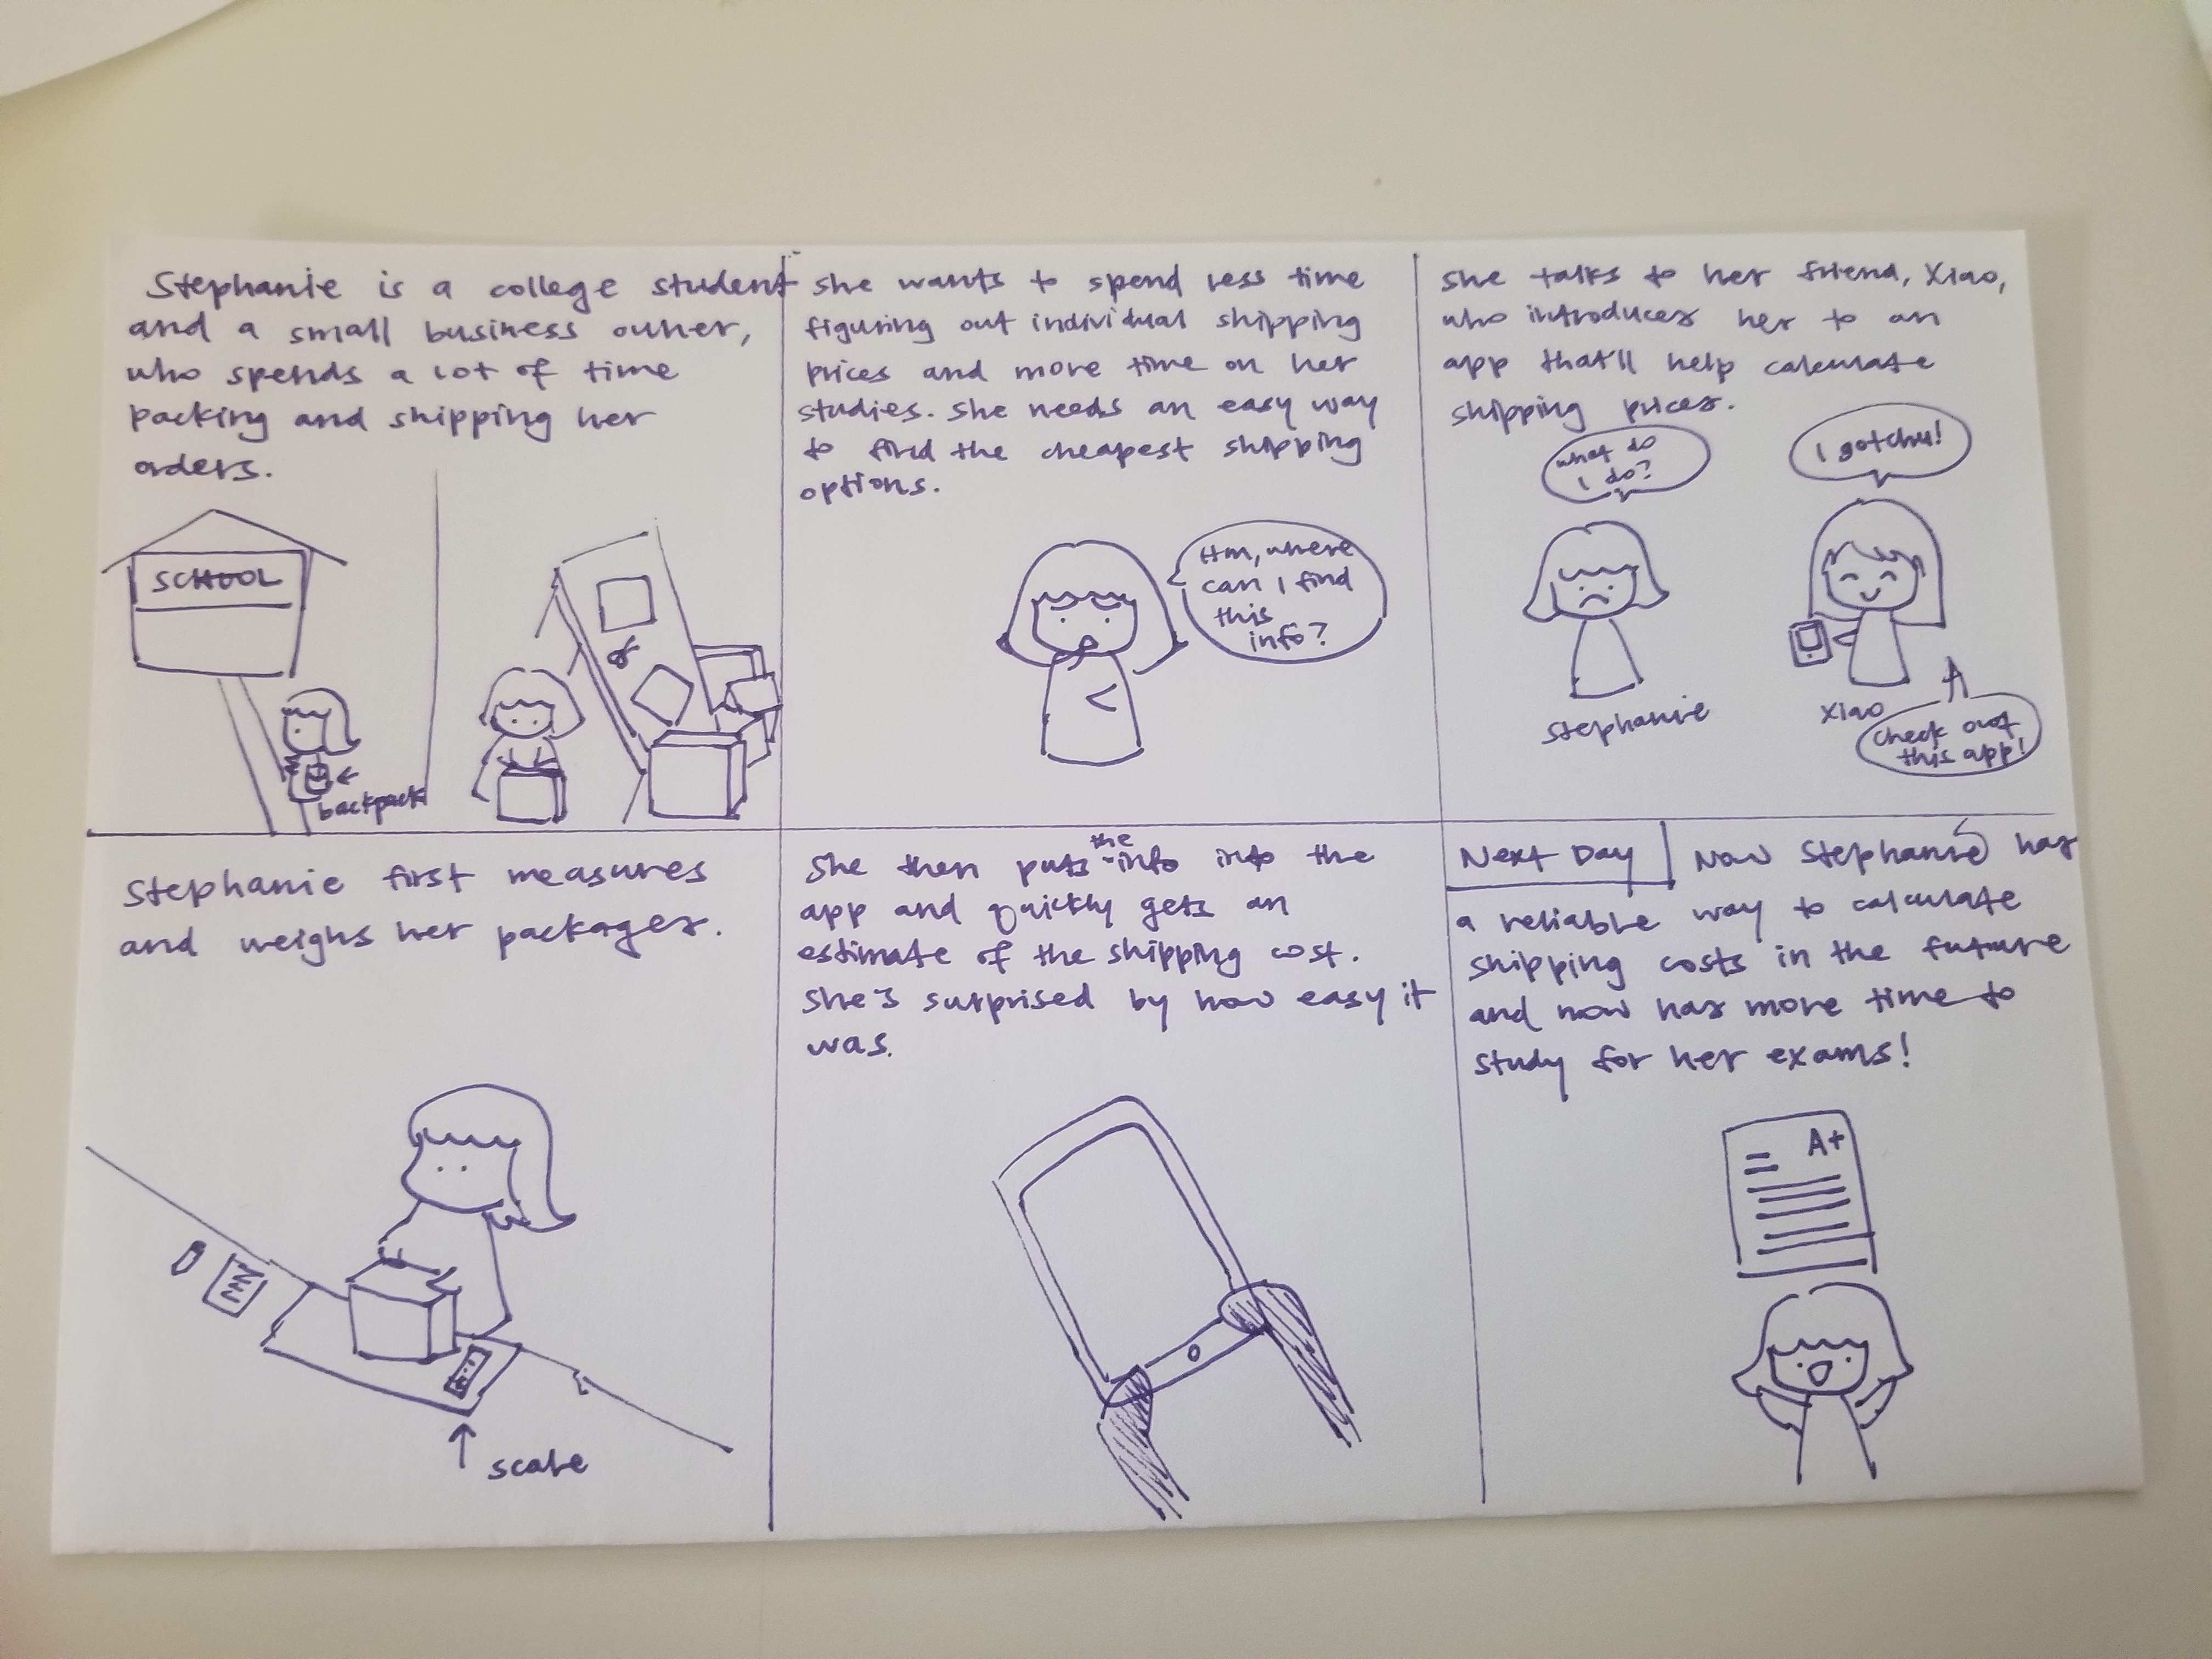 Stephanie is a college student
and a small business owner,
who spends a lot of time
packing and shipping her
orders.
SCHOOL
backpack
She wants to spend less time
figuring out individual shipping
prices and more time on her
studies. She needs an easy way
to find the cheapest shipping
options.
Hm, where
can I find
this
info?
She talks to her friend, Xiao,
who introduces her to an
app that'll help calculate
shipping prices.
what do
I do?
I gotchu!
Stephanie
Xiao
Check out
this app!
Stephanie first measures
and weighs her packages.
scale
She then puts the info into the
app and quickly gets an
estimate of the shipping cost.
She's surprised by how easy it
was.
Next Day
Now Stephanie has
a reliable way to calculate
shipping costs in the future
and now has more time to
study for her exams!
A+